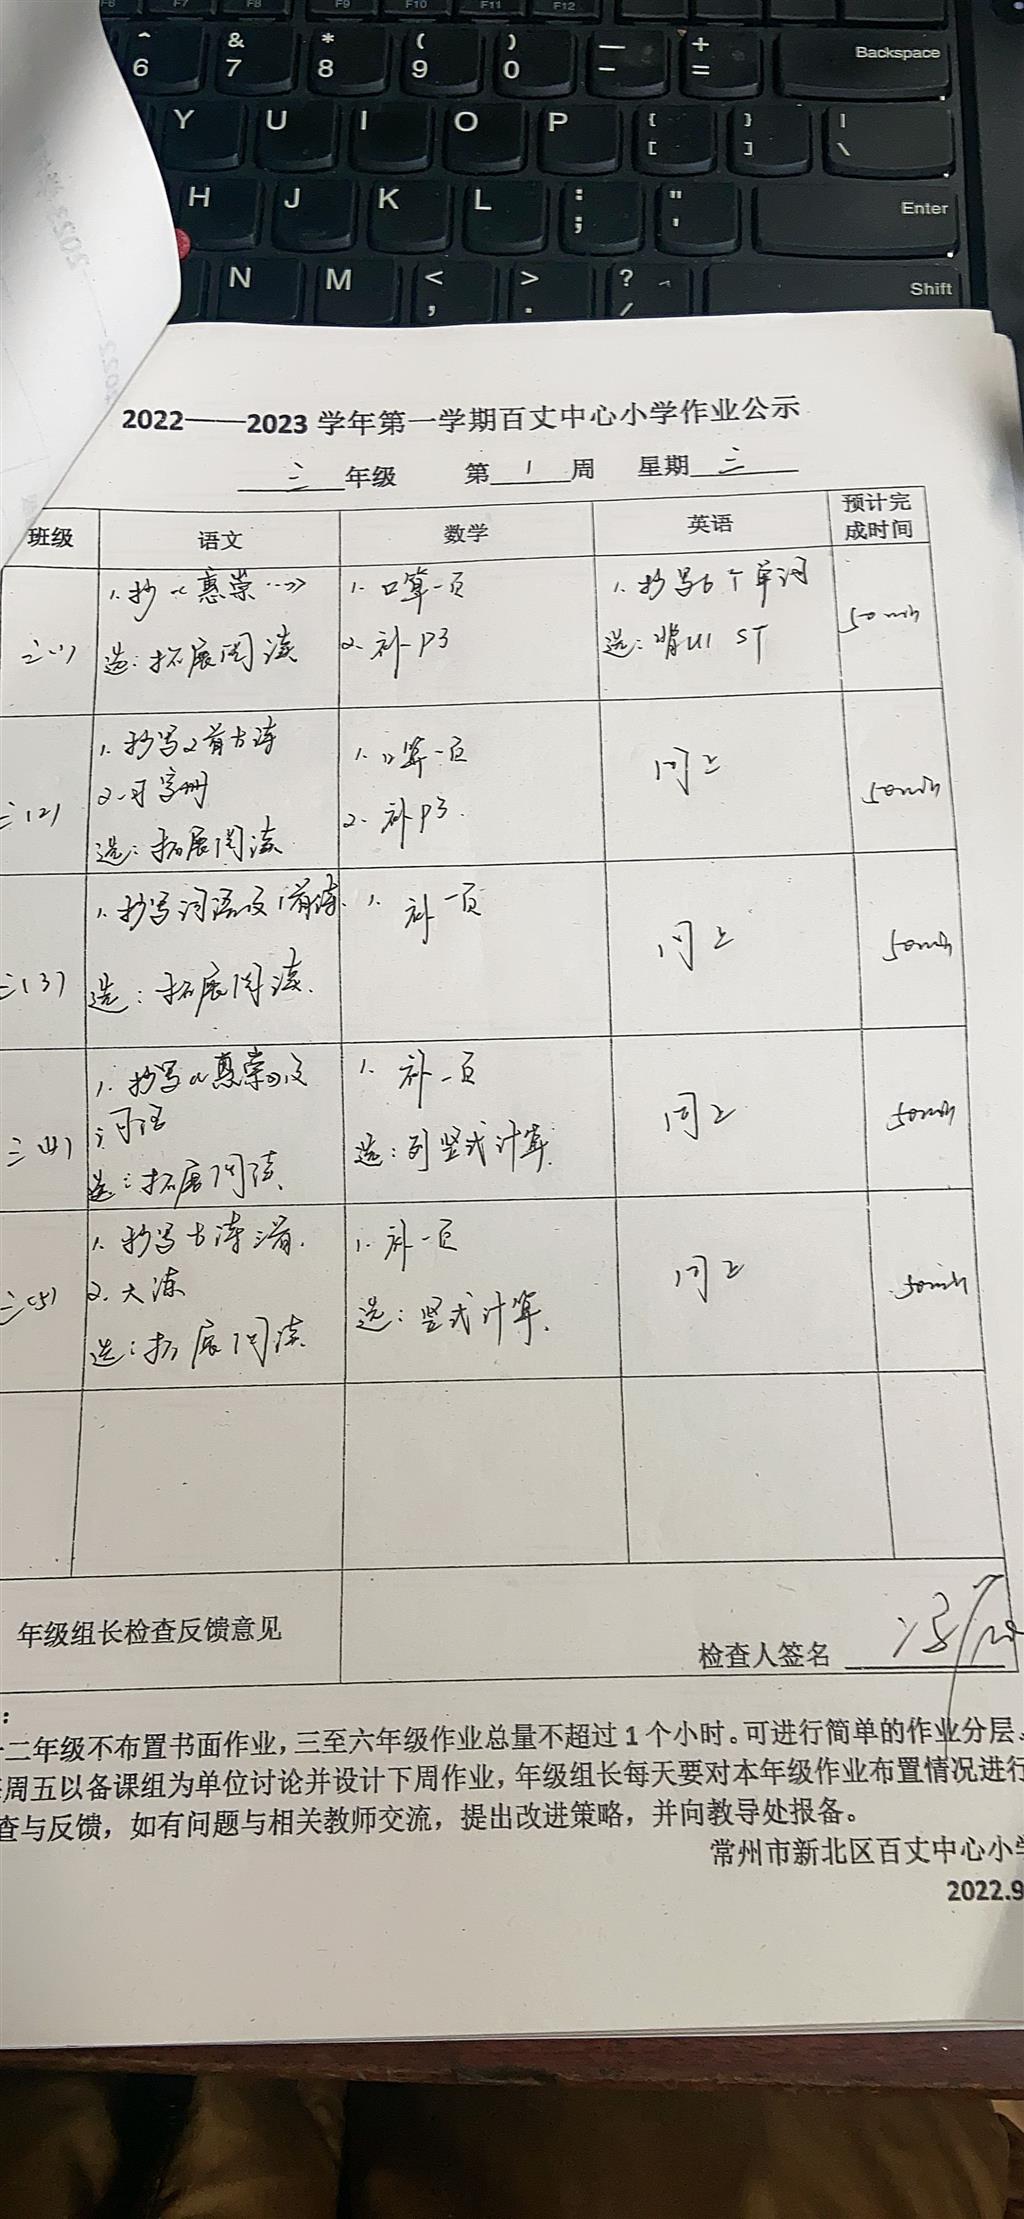 F6 F7 F8 F9 F10 F11 F12
^ & * ( ) — +
6 7 8 9 0 - = Backspace
Y U I O P { } |
[ ] \
H J K L : " Enter
; '
N M < > ? Shift
, . /
2022——2023 学年第一学期百丈中心小学作业公示
三 年级 第 1 周 星期 三
班级 语文 数学 英语 预计完
成时间
三(1) 1. 抄《惠崇…》 1. 口算一页 1. 抄写6个单词 50min
选：拓展阅读 2. 补P3 选：背U1 ST
三(2) 1. 抄写2首古诗 1. 口算一页 同上 50min
2. 习字册 2. 补P3.
选：拓展阅读
三(3) 1. 抄写词语及1首诗. 1. 补一页 同上 50min
选：拓展阅读.
三(4) 1. 抄写《惠崇》及 1. 补一页 同上 50min
词语 选：列竖式计算.
选：拓展阅读.
三(5) 1. 抄写古诗三首. 1. 补一页 同上 50min
2. 大练 选：竖式计算.
选：拓展阅读.
年级组长检查反馈意见 检查人签名
：
二年级不布置书面作业，三至六年级作业总量不超过 1 个小时。可进行简单的作业分层、
周五以备课组为单位讨论并设计下周作业，年级组长每天要对本年级作业布置情况进行
查与反馈，如有问题与相关教师交流，提出改进策略，并向教导处报备。
常州市新北区百丈中心小学
2022.9